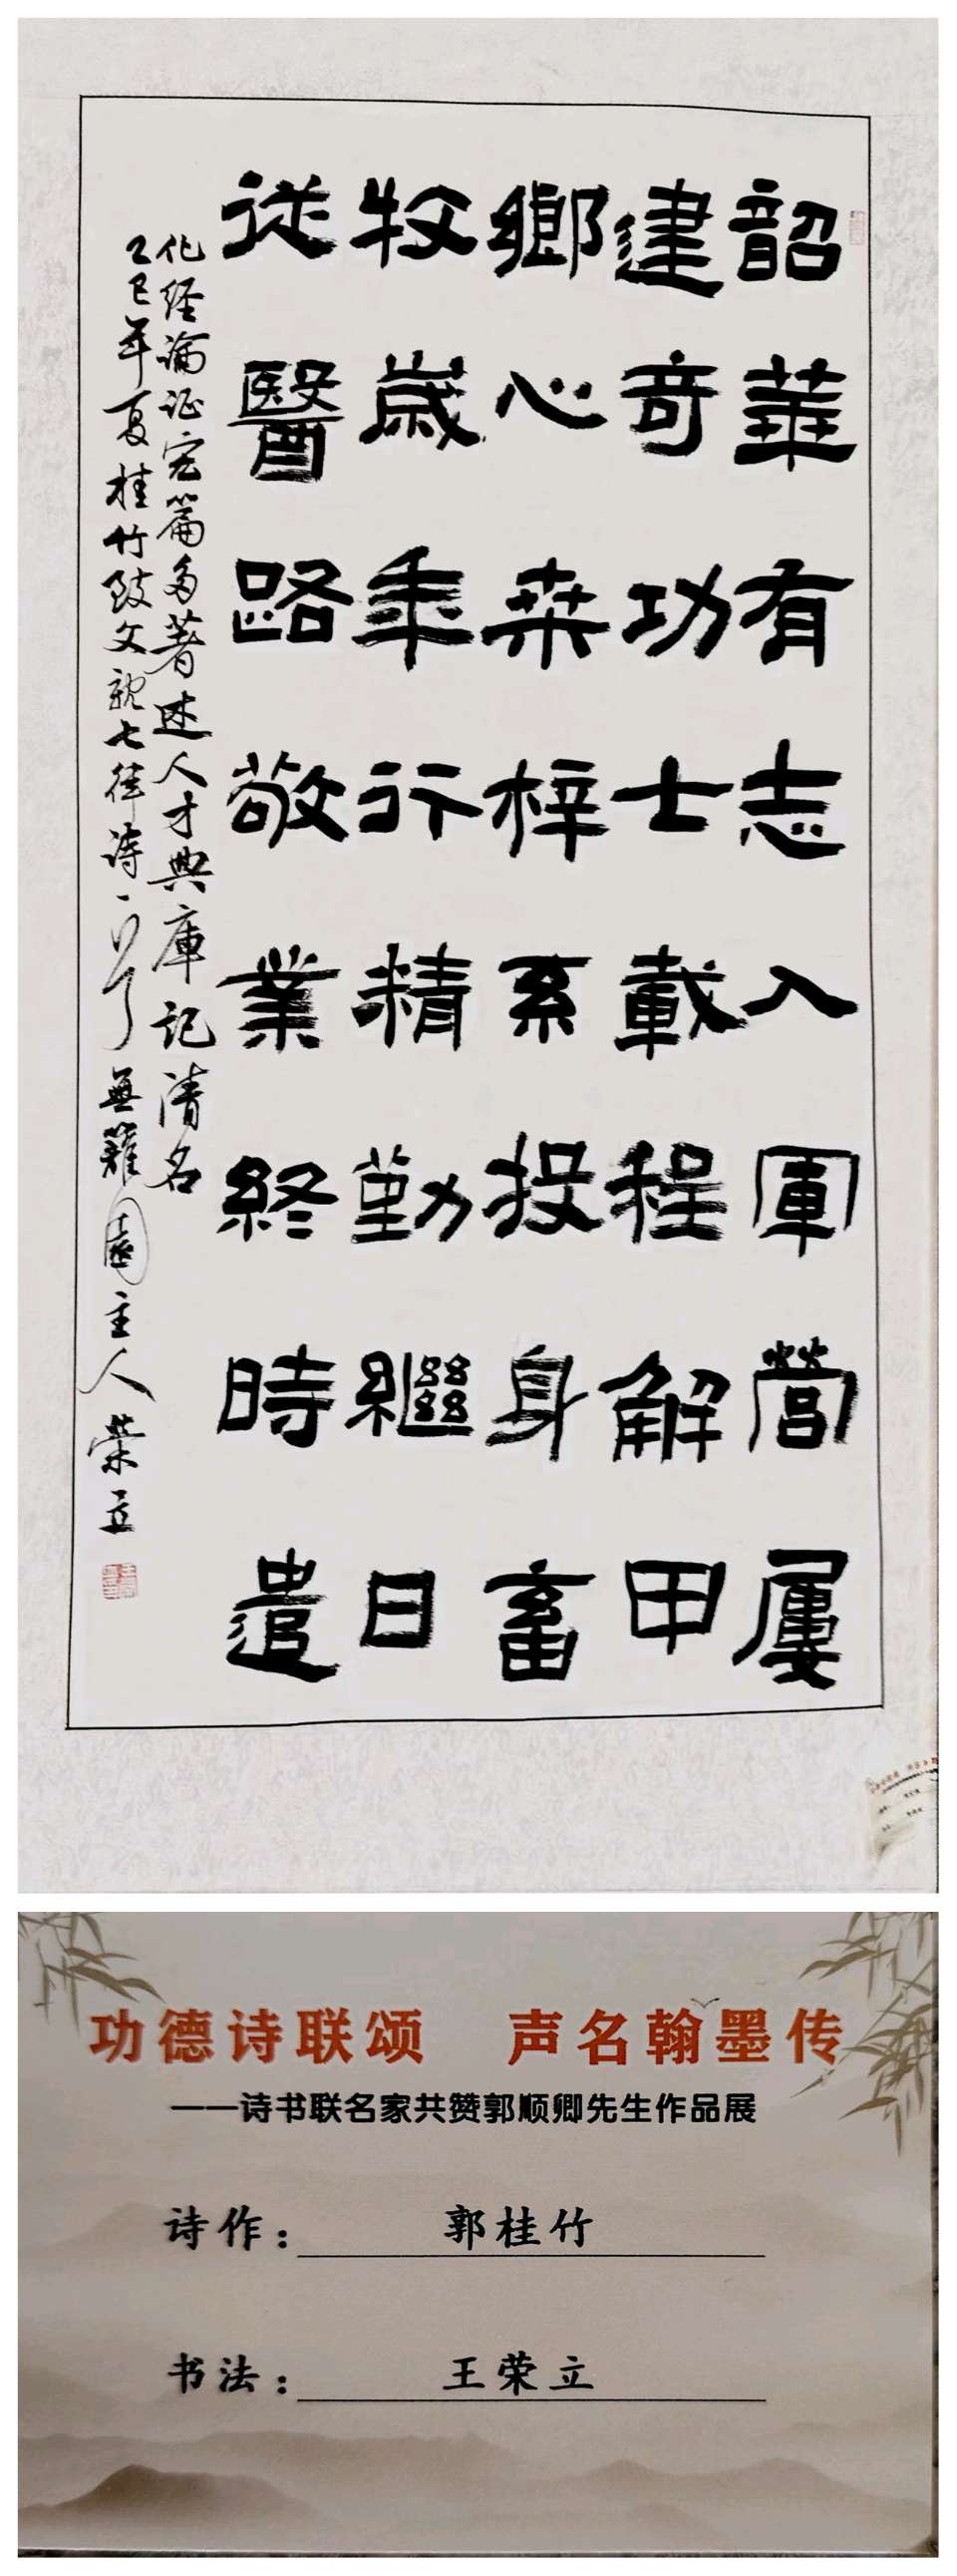 韶華有志入軍營屢
建奇功士載程解甲
鄉心桒梓系投身畜
牧歲年行精勤繼日
從醫路敬業終時遣
化经论证宏篇多著述人才典庫记清名
乙巳年夏桂竹致文親七律诗一首 無籬園主人荣立
功德诗联颂 声名翰墨传
——诗书联名家共赞郭顺卿先生作品展
诗作: 郭桂竹
书法: 王荣立